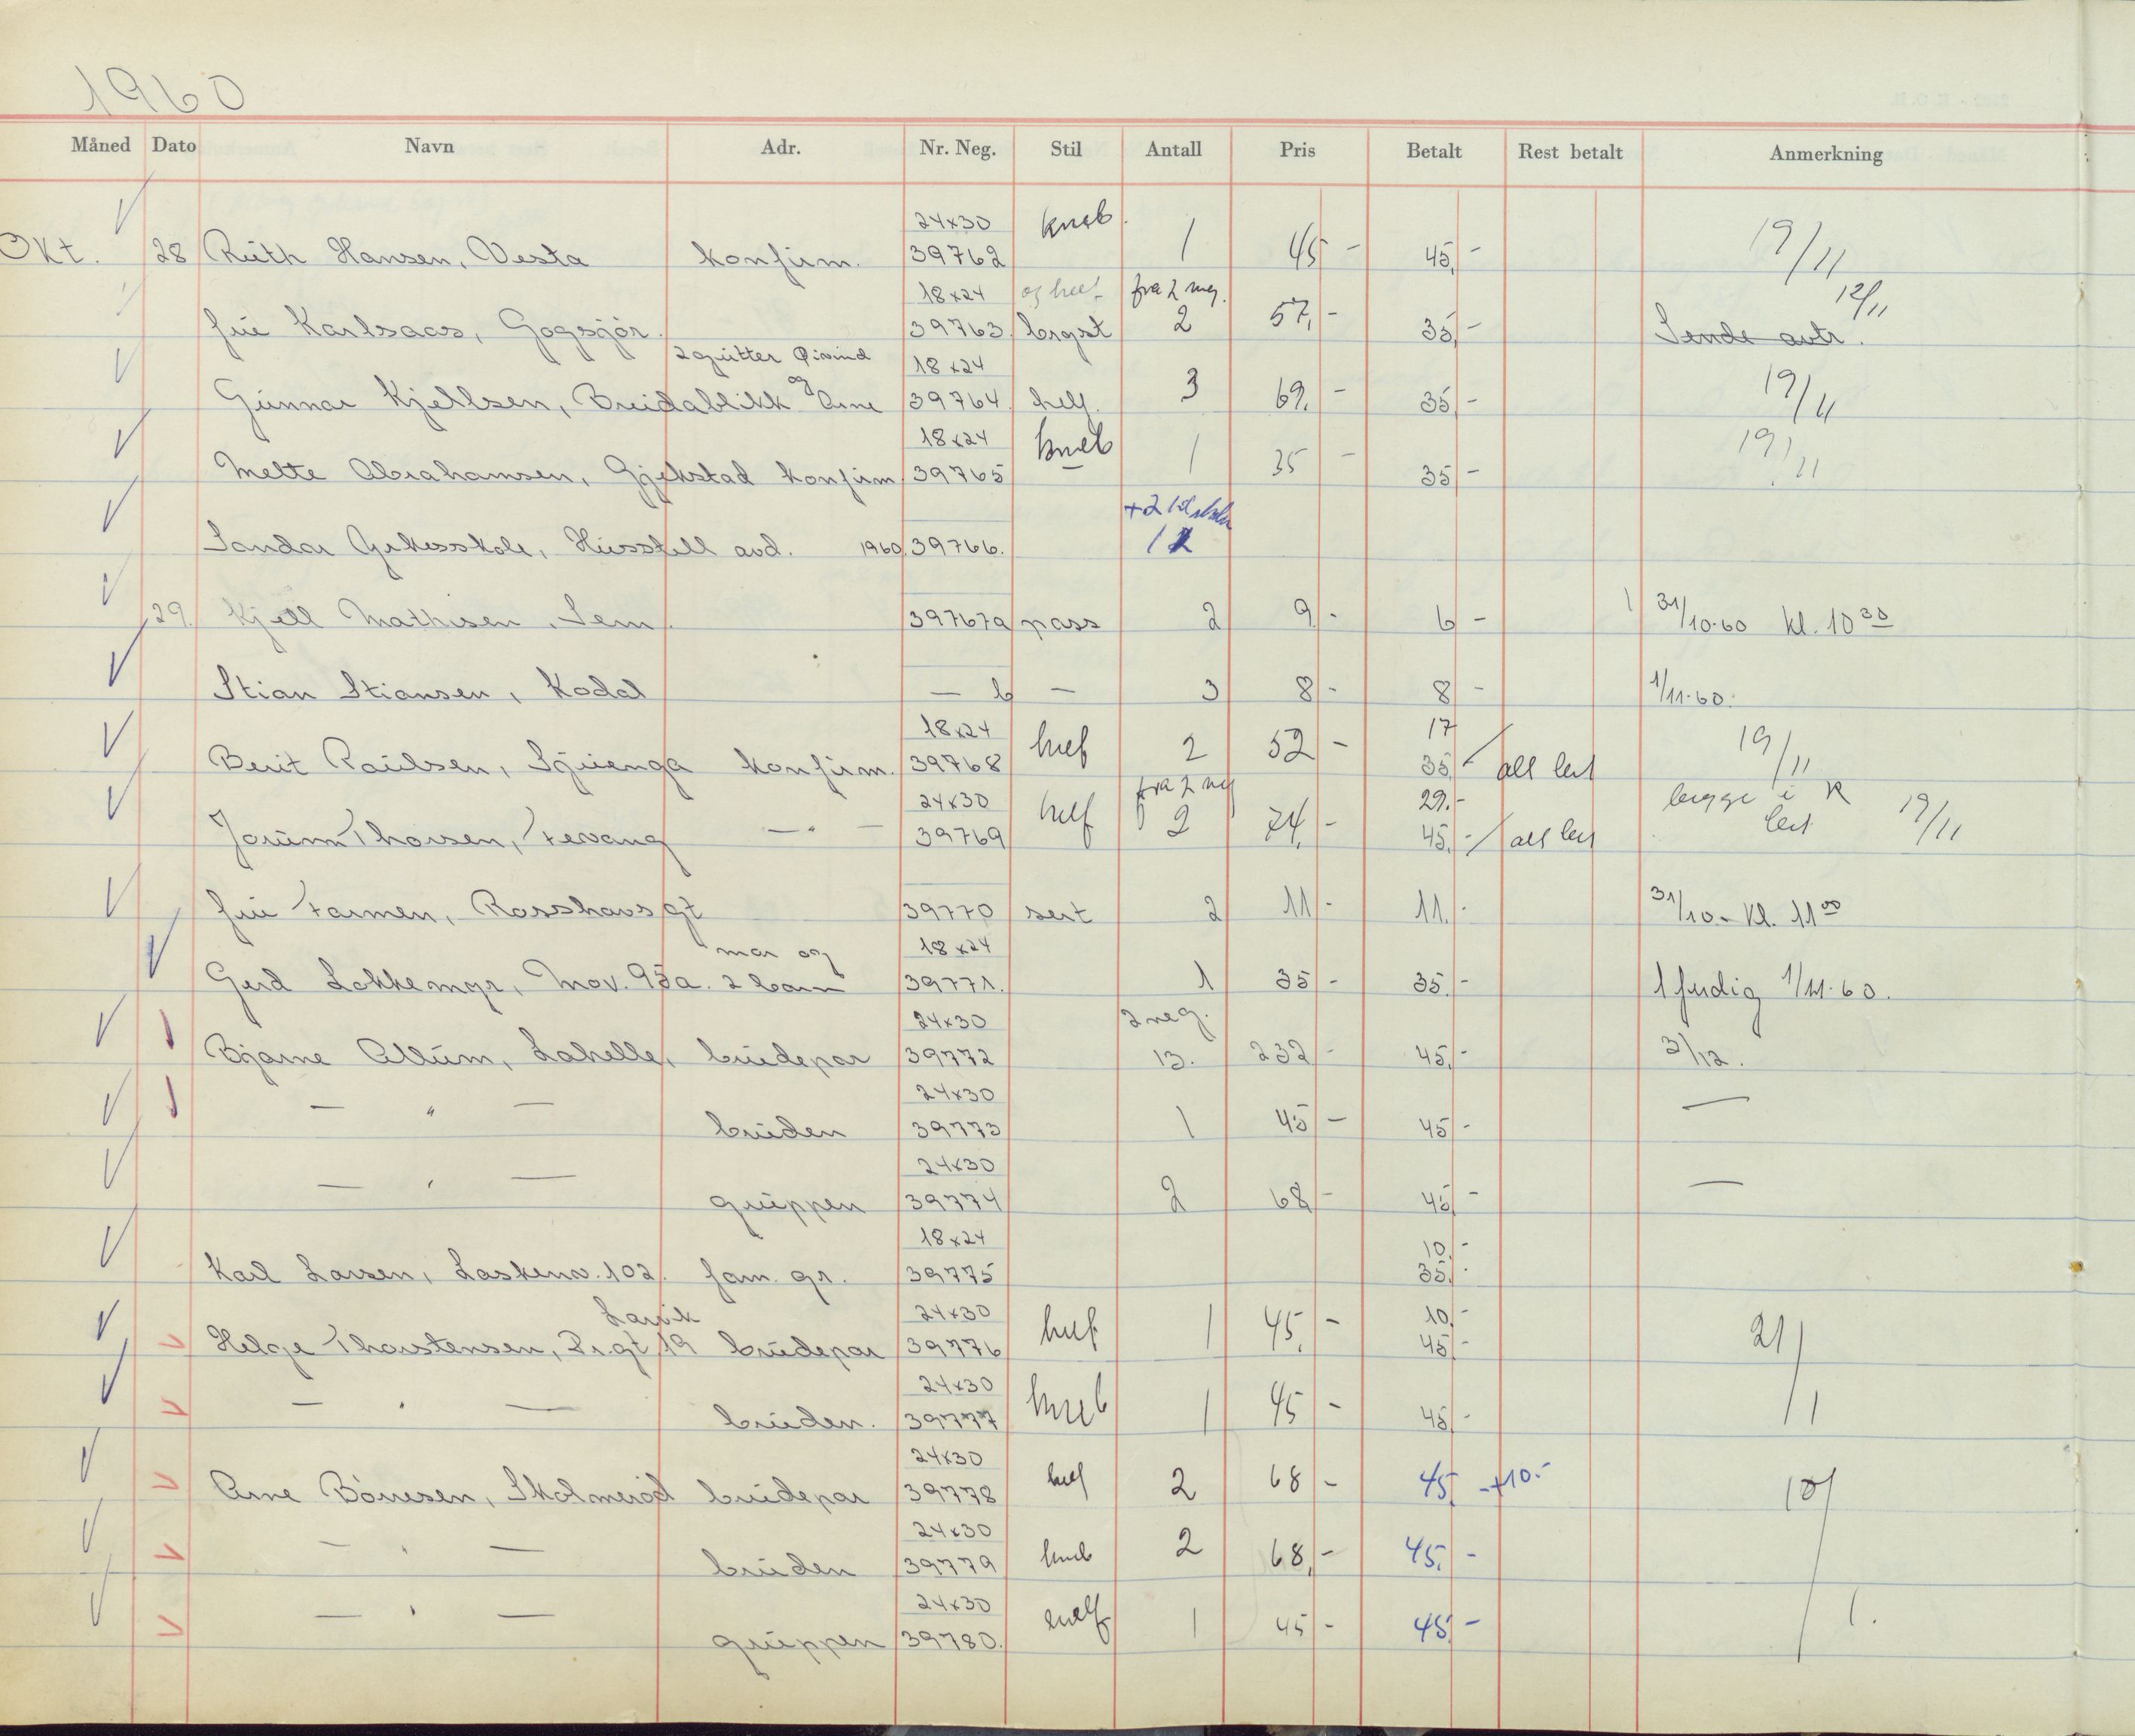 1960
Måned Dato Navn Adr. Nr. Neg. Stil Antall Pris Betalt Rest betalt Anmerkning
24x30
Okt. 28 Ruth Hansen, Vesta konfirm. 39762 kneb. 1 45,- 45,- 19/11
18x24 og fra 2 neg. 12/11
fru Karlsaas, Gogsjør. 39763 bryst 2 57,- 35,- Sende avtr.
2 gutter Øivind 18x24
Gunnar Kjellsen, Breidablikk og Arne 39764 helf. 3 69,- 35,- 19/11
18x24
Mette Abrahamsen, Gjekstad konfirm 39765 kneb 1 35 - 35,- 19/11
+2
Sandar Yrkesskole, Husstell avd. 1960 39766. 12
29. Kjell Mathisen, Sem. 39767a pass 2 9,- 6,- 31/10-60 kl. 10 30
Stian Stiansen, Kodal — b — 3 8,- 8,- 1/11-60.
18x24 17
Berit Paulsen, Sguenga konfirm. 39768 helf 2 52,- 35,- 19/11
24x30 fra 2 neg 29,- legge i
Jorunn Thorsen, Fevang — " — 39769 helf 2 74,- 45,- 19/11
fru Farmen, Rosshavsgt 39770 sert 2 11,- 11,- 31/10 - Kl. 11 00
mor og 18x24
Gerd Løkkemyr, Mov. 95a. 2 barn 39771. 1 35,- 35,- 1 ferdig 1/11-60.
24x30 2 neg.
Bjarne Allum, Lahelle, brudepar 39772 13. 232,- 45,- 3/12.
24x30
— " — bruden 39773 1 45,- 45,- —
24x30
— " — gruppen 39774 2 68,- 45,- —
18x24 10,-
Karl Larsen, Laskenv. 102. fam. gr. 39775 35,-
Larvik 24x30 10,-
Helge Thorstensen, Pr.gt 19 brudepar 39776 helf 1 45,- 45,- 21/1
24x30
— " — bruden. 39777 kneb 1 45,- 45,-
24x30
Arne Bønesen, Skolmerød brudepar 39778 helf 2 68,- 45,- +10.-
24x30
— " — bruden 39779 kneb 2 68,- 45,-
24x30
— " — gruppen 39780. 1 45,- 45,-